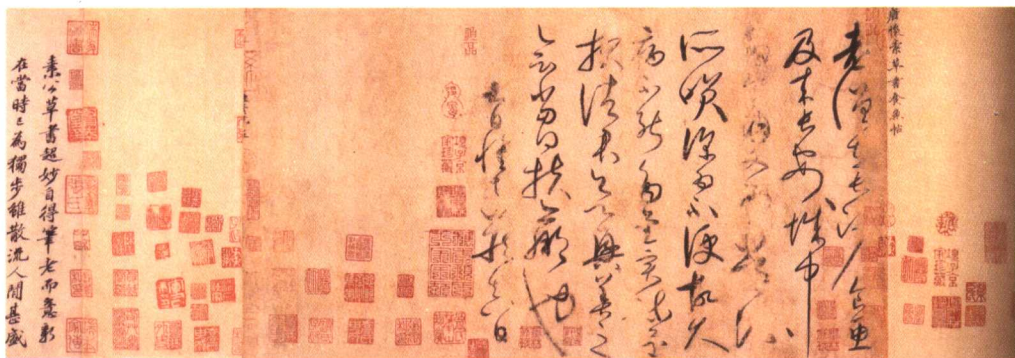 唐懷素草書食魚帖
老僧在長沙食魚
及來長安城中
多食肉又為常流
所笑深為不便故久
病不能多書實疏還
報諸君欲興善之
會當得扶羸也
日懷素藏真白
素公草書超妙自得筆老而意新
在當時已為獨步雖散流人間甚盛